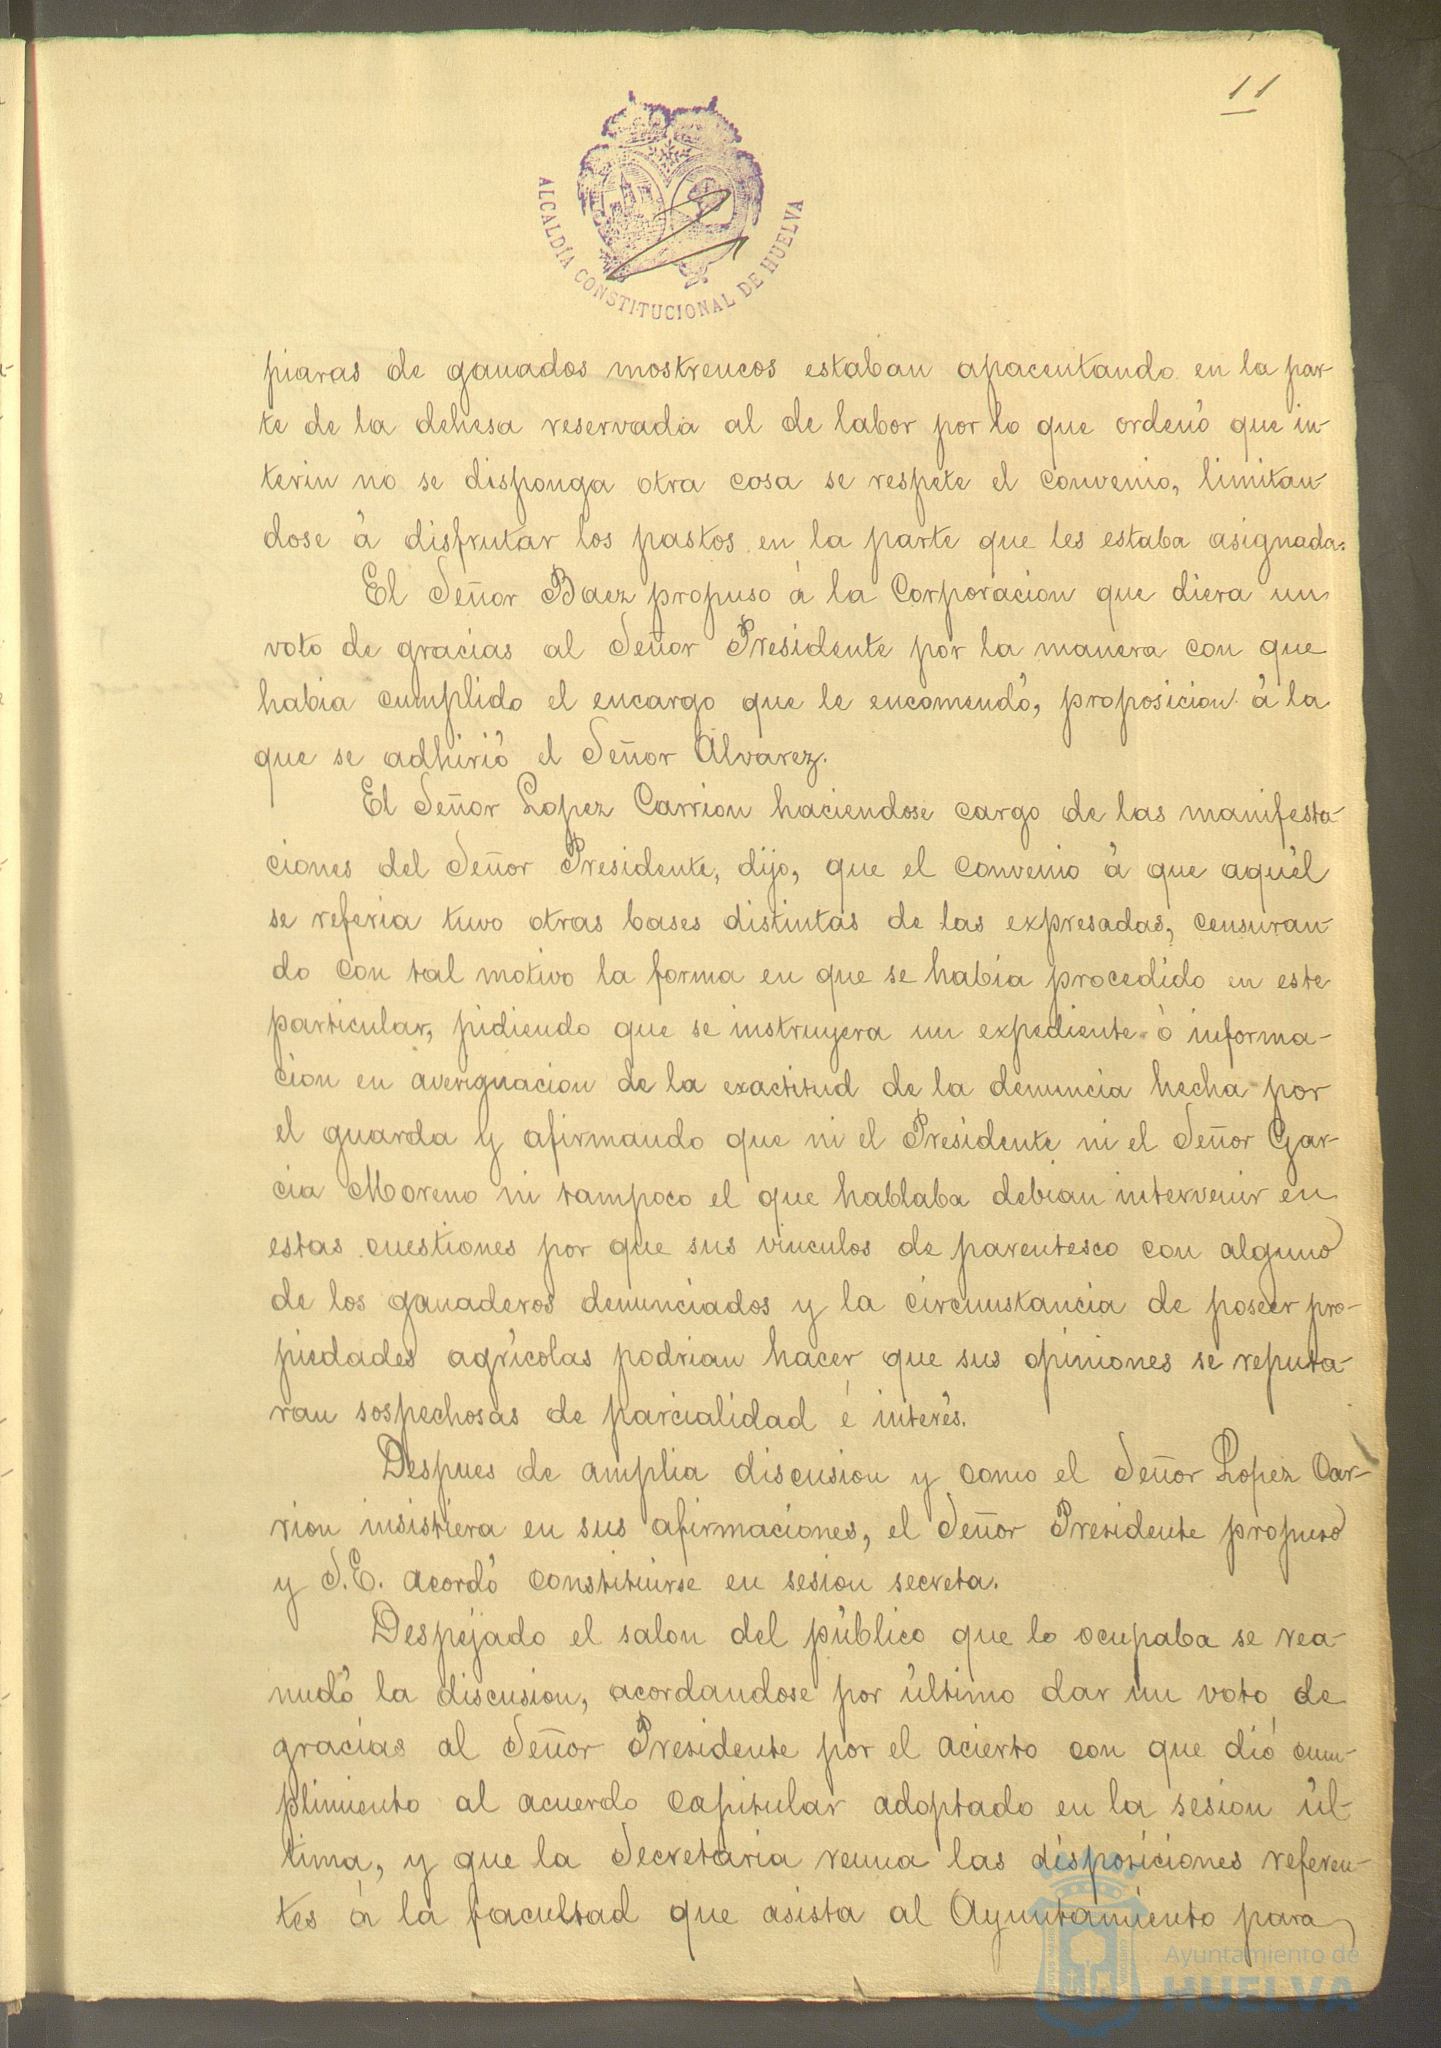 11
ALCALDÍA CONSTITUCIONAL DE HUELVA
piaras de ganados mostrencos estaban apacentando en la par-
te de la dehesa reservada al de labor por lo que ordenó que in-
terin no se disponga otra cosa se respete el convenio, limitan-
dose á disfrutar los pastos en la parte que les estaba asignada.
El Señor Baez propuso á la Corporacion que diera un
voto de gracias al Señor Presidente por la manera con que
habia cumplido el encargo que le encomendó, proposicion á la
que se adhirió el Señor Alvarez.
El Señor Lopez Carrion haciendose cargo de las manifesta-
ciones del Señor Presidente, dijo, que el convenio á que aquél
se referia tuvo otras bases distintas de las expresadas, censuran-
do con tal motivo la forma en que se habia procedido en este
particular, pidiendo que se instruyera un expediente ó informa-
cion en averiguacion de la exactitud de la denuncia hecha por
el guarda y afirmando que ni el Presidente ni el Señor Gar-
cia Moreno ni tampoco el que hablaba debian intervenir en
estas cuestiones por que sus vinculos de parentesco con alguno
de los ganaderos denunciados y la circunstancia de poseer pro-
piedades agrícolas podrian hacer que sus opiniones se reputa-
ran sospechosas de parcialidad é interés.
Despues de amplia discusion y como el Señor Lopez Car-
rion insistiera en sus afirmaciones, el Señor Presidente propuso
y S.E. acordó constituirse en sesion secreta.
Despejado el salon del público que lo ocupaba se rea-
nudó la discusion, acordandose por último dar un voto de
gracias al Señor Presidente por el acierto con que dió cum-
plimiento al acuerdo capitular adoptado en la sesion úl-
tima, y que la Secretaria reuna las disposiciones referen-
tes á la facultad que asista al Ayuntamiento para
Ayuntamiento de
HUELVA